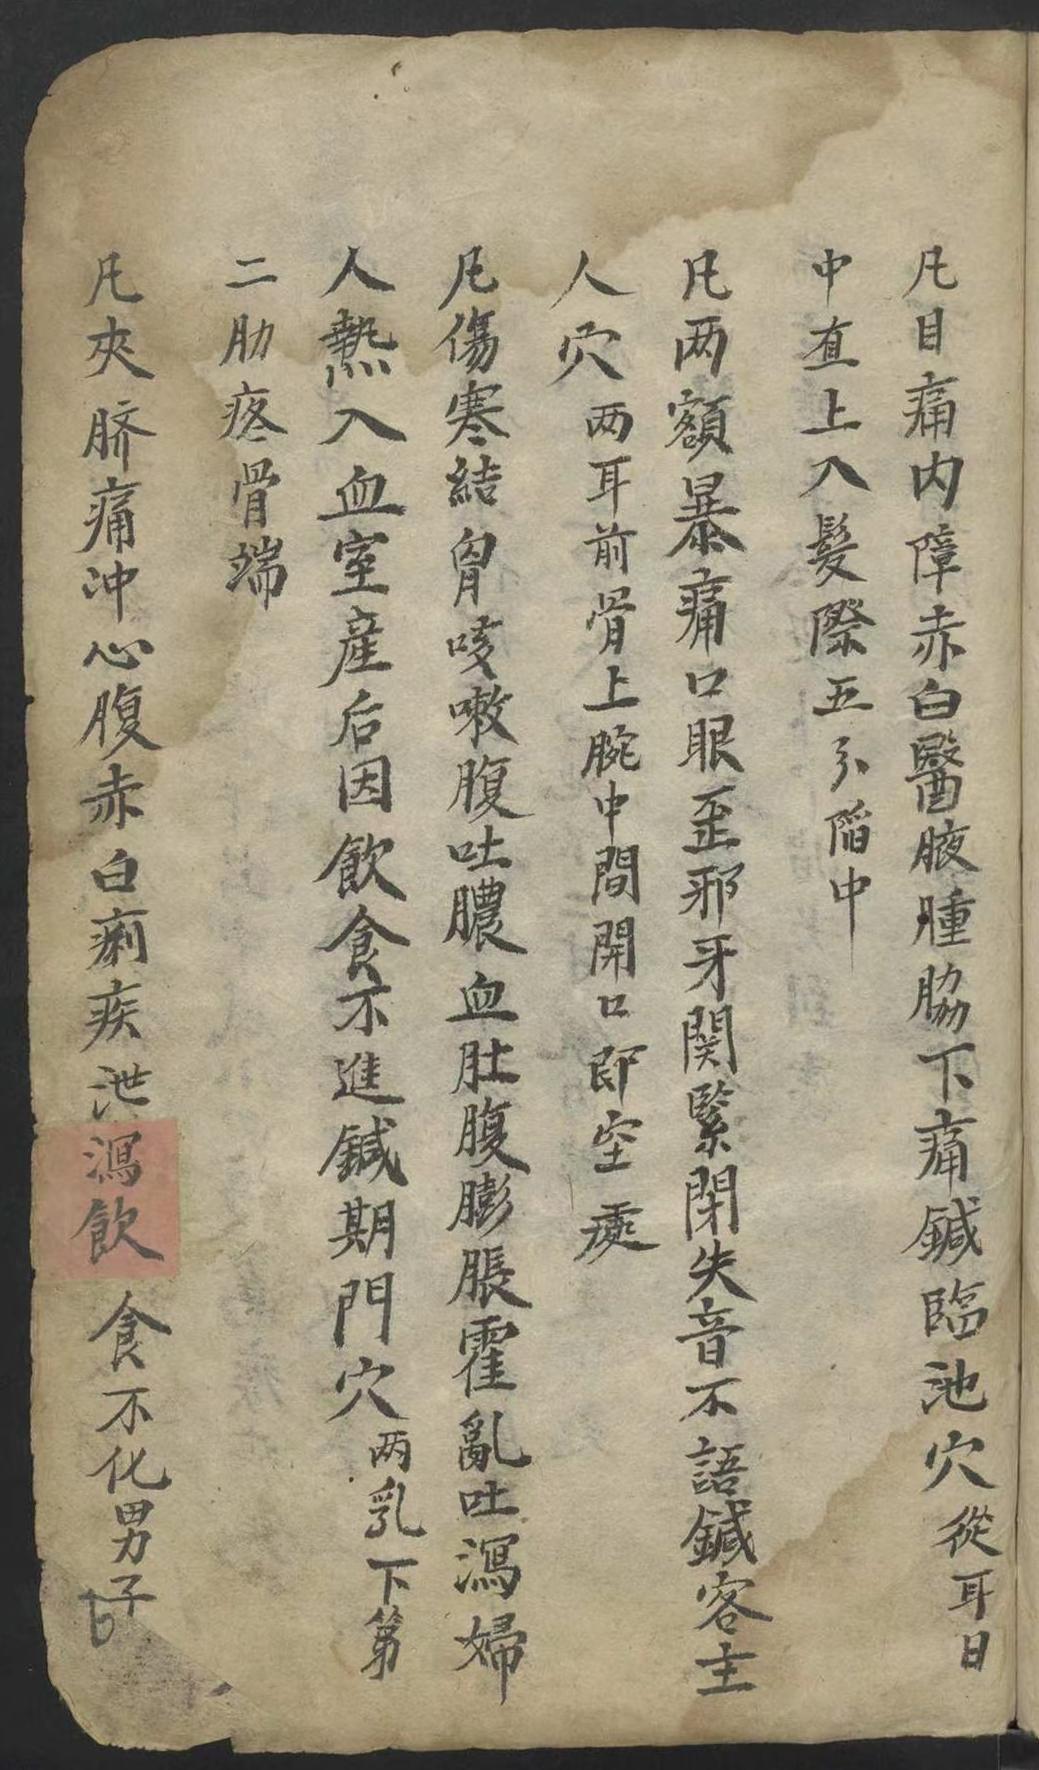 凡目痛内障赤白醫腋腫脇下痛鍼臨池穴從耳日
中直上入髮際五分陷中
凡两額暴痛口眼歪邪牙関緊閉失音不語鍼客主
人穴两耳前骨上腕中間開口即空處
凡傷寒結胷咳嗽腹吐膿血肚腹膨脹霍亂吐瀉婦
人熱入血室產后因飲食不進鍼期門穴两乳下第
二肋疼骨端
凡夾臍痛冲心腹赤白痢疾泄瀉飲食不化男子